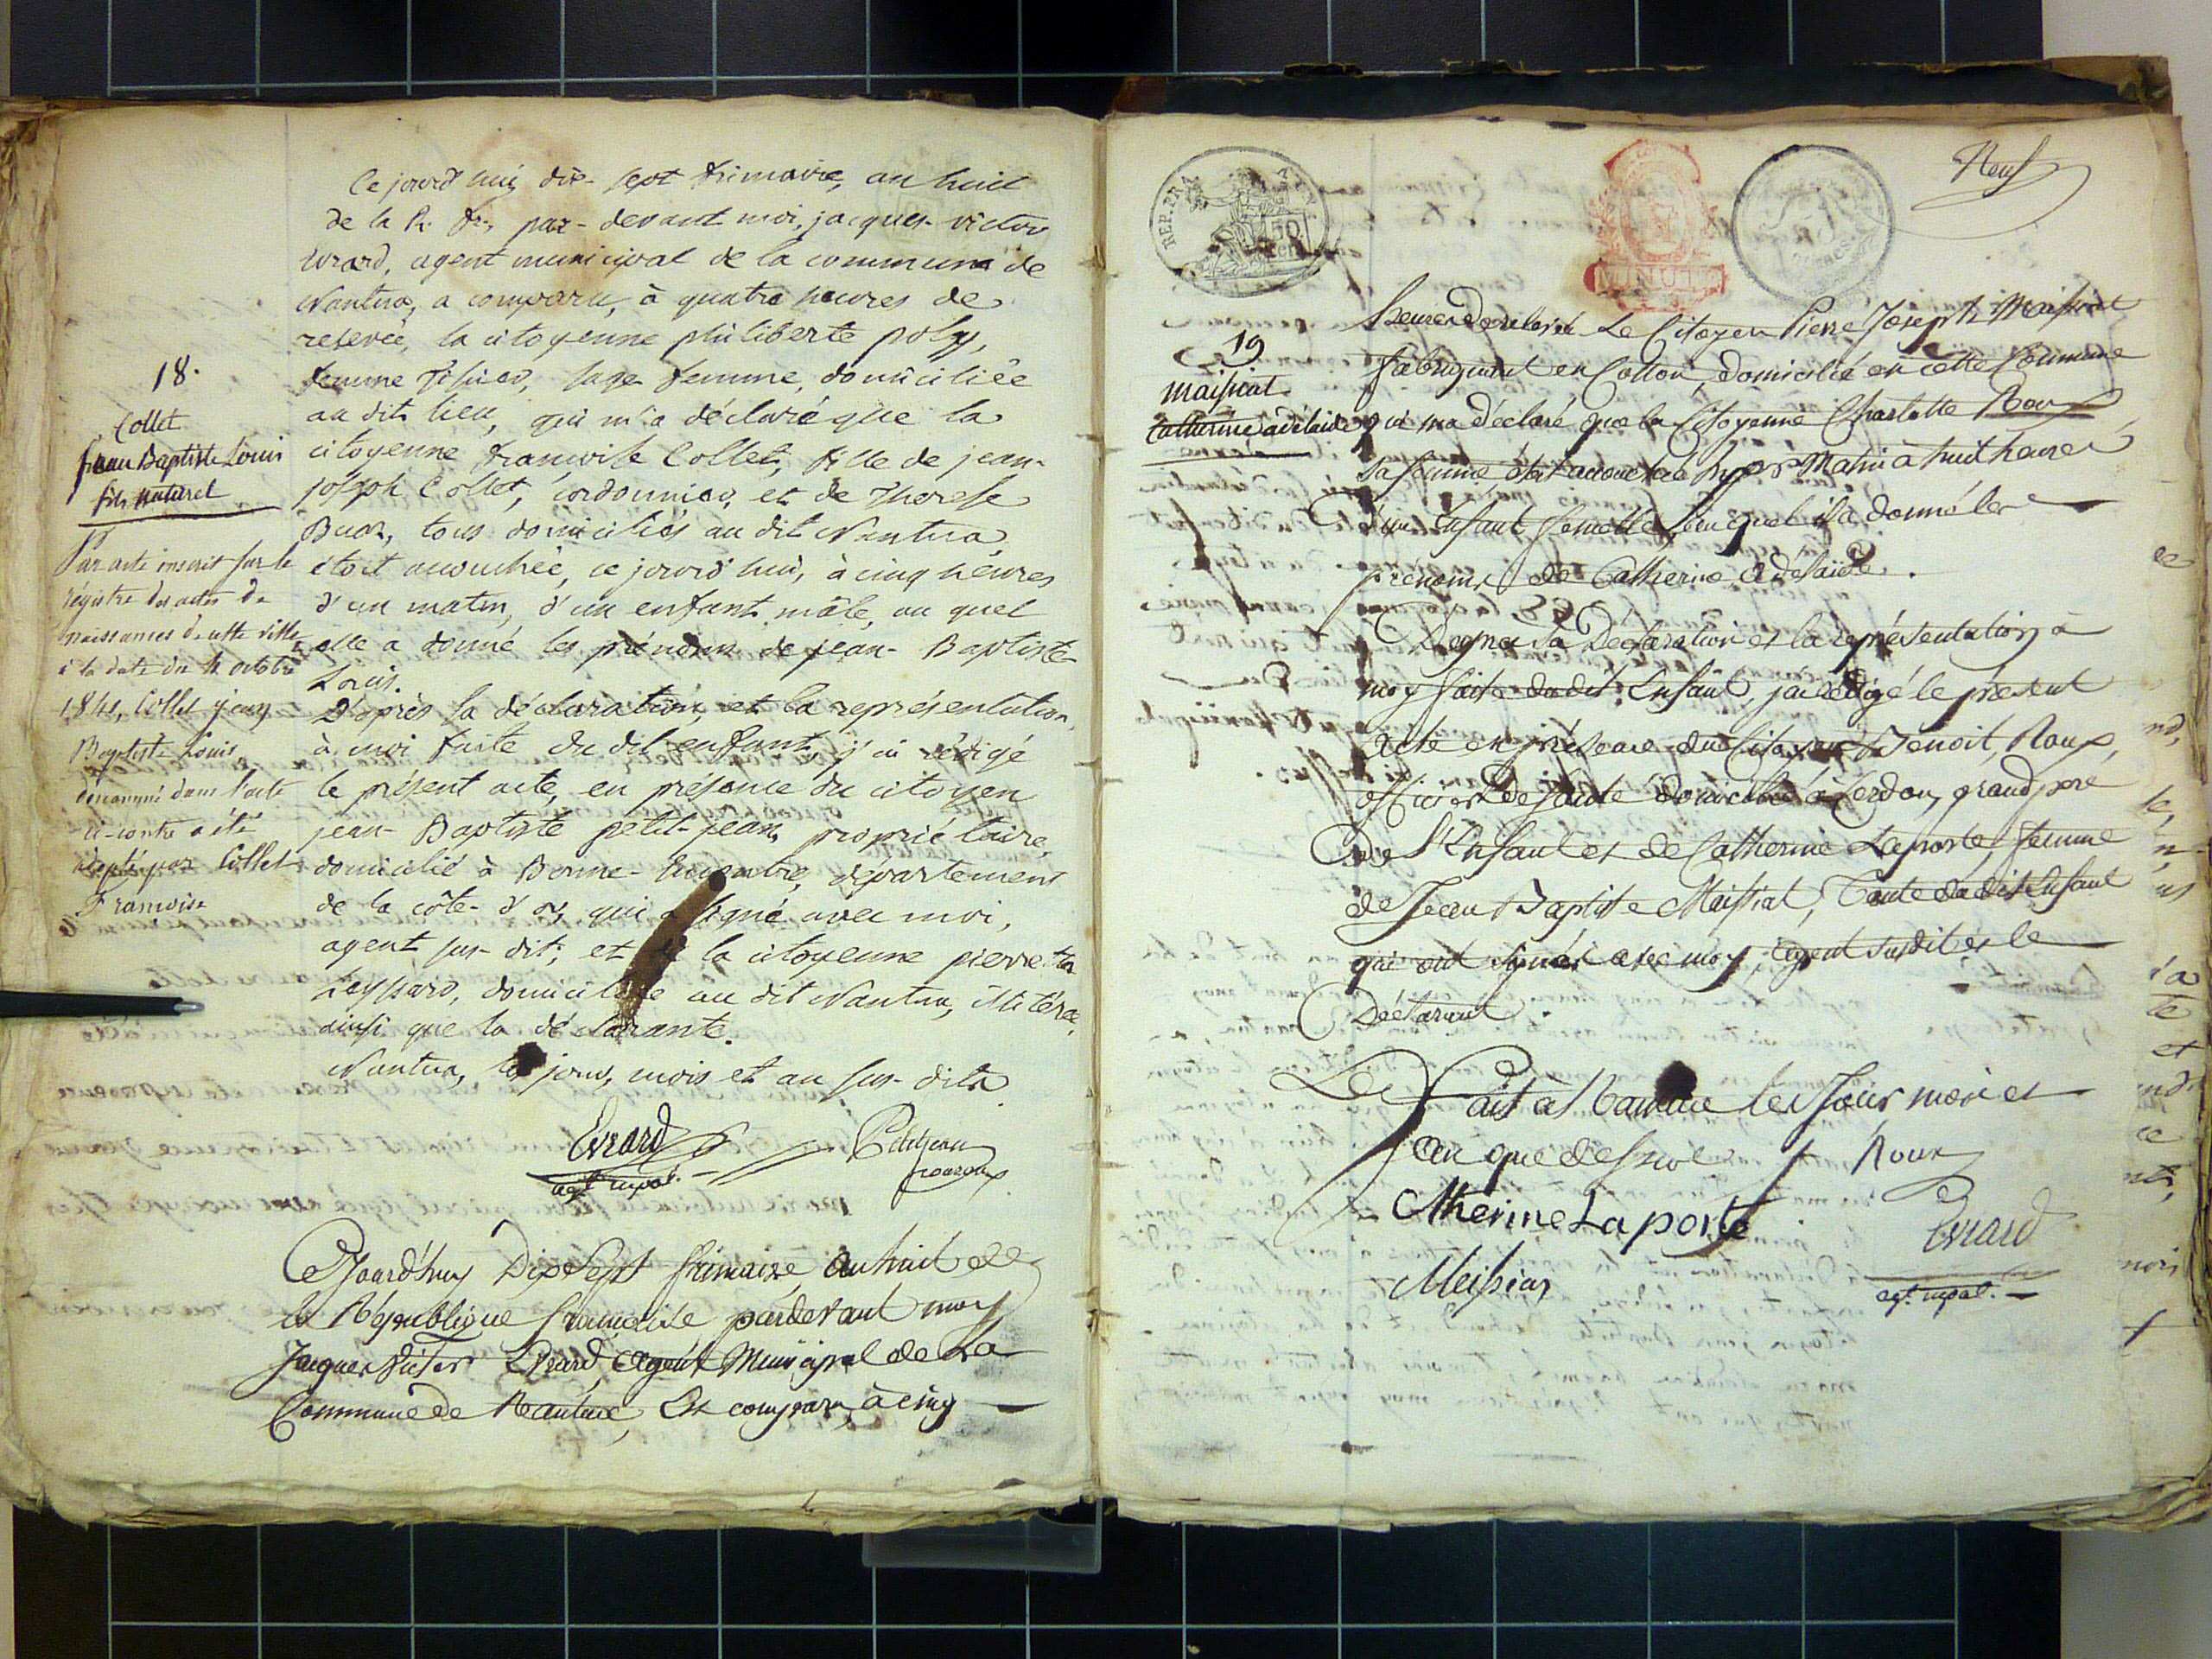 Ce jourd'hui, dix-sept frimaire, an huit
de la R. fr., par-devant moi, jacques-victor
Evrard, agent municipal de la commune de
Nantua, a comparu, à quatre heures de
relevée, la citoyenne philiberte poly,
femme sage femme, domiciliée
au dit lieu, qui m'a déclaré que la
citoyenne françoise Collet, fille de jean-
joseph Collet, cordonnier, et de Therese
tous domiciliés au dit Nantua,
étoit accouchée, ce jourd'hui, à cinq heures
d'un matin, d'un enfant mâle, au quel
elle a donné les prénoms de jean-Baptiste
Louis.
D'après la déclaration, et la représentation,
à moi faite du dit enfant, j'ai rédigé
le présent acte, en présence du citoyen
jean-Baptiste petit-jean, propriétaire,
domicilié à Bonne-Encontre, département
de la côte-d'or, qui a signé avec moi,
agent sus-dit; et la citoyenne pierrette
domiciliée au dit Nantua, illitérée
ainsi que la déclarante.
Nantua, les jour, mois et an sus-dits
Evrard
agt. mpal.
Petitjean
18.
Collet
jean Baptiste Louis
fils naturel
Par acte inscrit sur le
régistre des actes de
naissances de cette ville
à la date du 4 octobre
1841, Collet jean
Baptiste Louis
dénommé dans l'acte
ci-contre a été
adopté par Collet
Françoise
Cejourd'huy Dix Sept frimaire an huit de
la République française pardevant moy
Jacques Victor Evrard, agent Municipal de La
Commune de Nantua, Est comparu, à cinq
REP. FRA.
50
MINUTE
Neuf
19
maissiat
Catherine adélaide
heures de relevée Le Citoyen Pierre Joseph Maissiat
fabriquant en Cotton, domicilié en cette Commune
qui ma déclaré que la Citoyenne Charlotte Roux
Sa femme étoit accouchée hyer Matin à huit heures
d'un Enfant femelle, auquel il a donné les
prénoms de Catherine, adélaïde.
Dapres Sa Déclaration et la représentation à
moy faite dudit Enfant, jai rédigé le présent
acte en présence du Citoyen Benoit, Roux,
officier de Santé domicilié à Cerdon, grand pere
de l'Enfant et de Catherine Laporte, femme
de Jean Baptiste Maissiat, Tante dudit Enfant
qui ont signés avec moy, agent susdit et le
Déclarant.
Fait à Nantua les Jour mois et
an que dessus
Roux
Catherine Laporte
Evrard
Meissiat
agt. mpal.